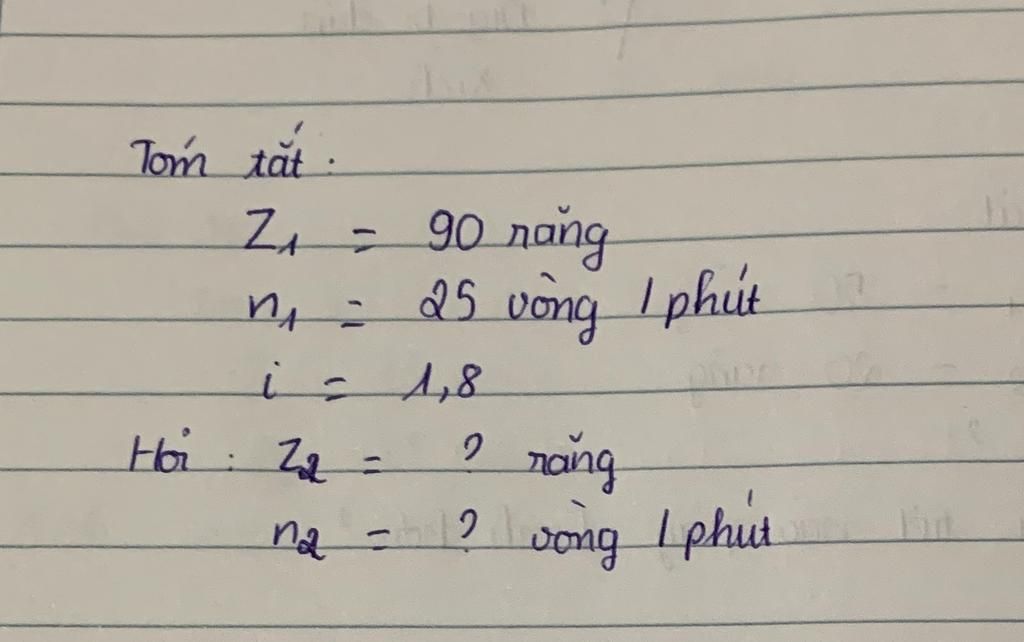 Tóm tắt :
Z1 = 90 răng
n1 = 25 vòng / phút
i = 1,8
Hỏi : Z2 = ? răng
n2 = ? vòng / phút